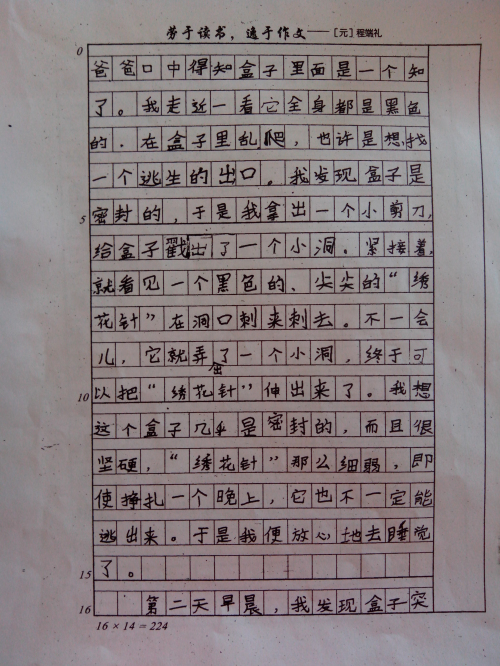 劳于读书，逸于作文——［元］程端礼
0
爸爸口中得知盒子里面是一个知
了。我走近一看它全身都是黑色
的，在盒子里乱爬，也许是想找
一个逃生的出口。我发现盒子是
5 密封的，于是我拿出一个小剪刀，
给盒子戳出了一个小洞。紧接着，
就看见一个黑色的、尖尖的“绣
花针”在洞口刺来刺去。不一会
儿，它就弄出了一个小洞，终于可
10 以把“绣花针”伸出来了。我想
这个盒子几乎是密封的，而且很
坚硬，“绣花针”那么细弱，即
使挣扎一个晚上，它也不一定能
逃出来。于是我便放心地去睡觉
15 了。
16 第二天早晨，我发现盒子突
16 × 14 = 224